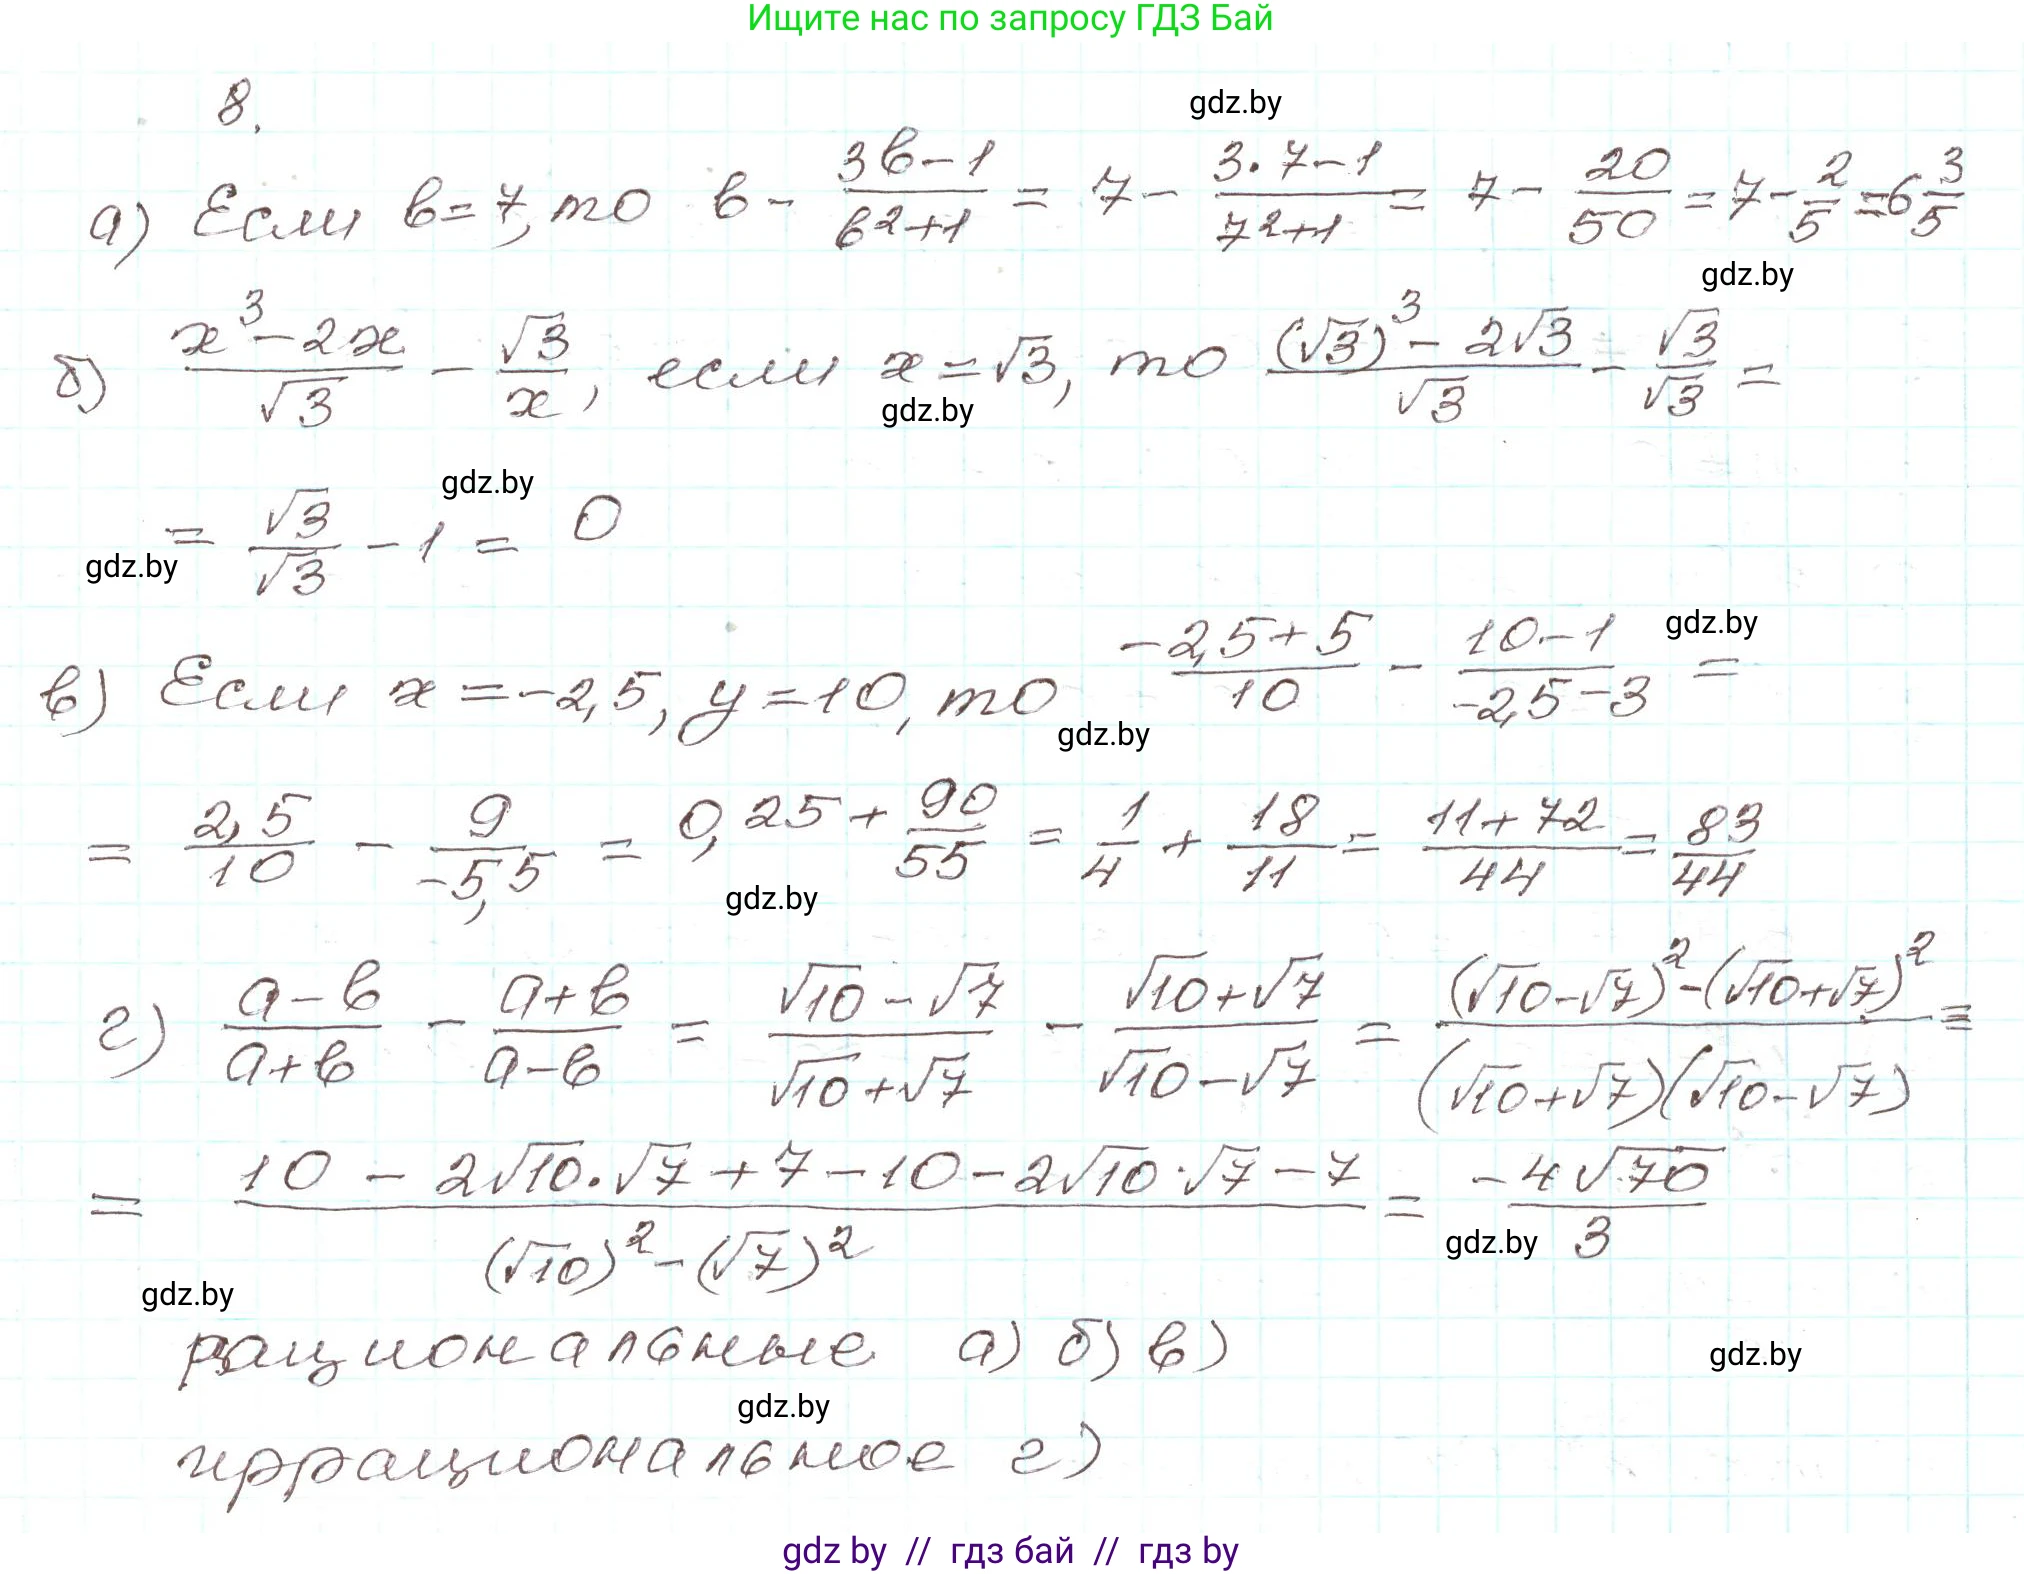 Ищите нас по запросу ГДЗ Бай
8.
gdz.by
а) Если b=7, то b - (3b-1)/(b²+1) = 7 - (3·7-1)/(7²+1) = 7 - 20/50 = 7 - 2/5 = 6 3/5
gdz.by
б) (x³-2x)/√3 - √3/x, если x=√3, то ((√3)³-2√3)/√3 - √3/√3 =
gdz.by
gdz.by
= √3/√3 - 1 = 0
gdz.by
gdz.by
в) Если x=-2,5, y=10, то (-2,5+5)/10 - (10-1)/(-2,5-3) =
gdz.by
= 2,5/10 - 9/(-5,5) = 0,25 + 90/55 = 1/4 + 18/11 = (11+72)/44 = 83/44
gdz.by
г) (a-b)/(a+b) - (a+b)/(a-b) = (√10-√7)/(√10+√7) - (√10+√7)/(√10-√7) = ((√10-√7)²-(√10+√7)²)/((√10+√7)(√10-√7)) =
= (10-2√10·√7+7-10-2√10·√7-7)/((√10)²-(√7)²) = -4√70/3
gdz.by
gdz.by
рациональные а) б) в)
gdz.by
gdz.by
иррациональное г)
gdz by // гдз бай // гдз by